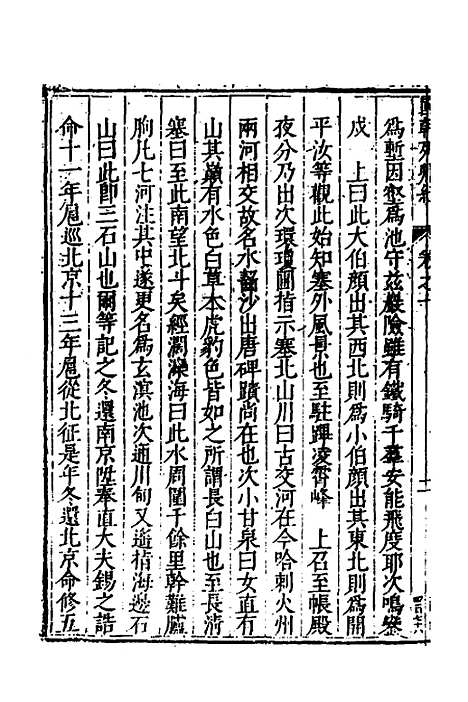 為塹因壑為池守茲巖險雖有鐵騎千羣安能飛度耶次鳴鑾
戍　上曰此大伯顏出其西北則為小伯顏出其東北則為開
平汝等觀此始知塞外風景也至駐蹕凌霄峰　上召至帳殿
夜分乃出次環瓊圃指示塞北山川曰古交河在今哈剌火州
兩河相交故名水齧沙出唐碑蹟尚在也次小甘泉曰女直有
山其巔有水色白草木虎豹色皆如之所謂長白山也至長清
塞曰至此南望北斗矣經濶灤海曰此水周圍千餘里幹難臚
朐凡七河注其中遂更名為玄滇池次通川甸又遙指海邊石
山曰此即三石山也爾等記之冬還南京陞奉直大夫錫之誥
命十一年扈巡北京十三年扈從北征是年冬還北京命修五
卷之十
十一